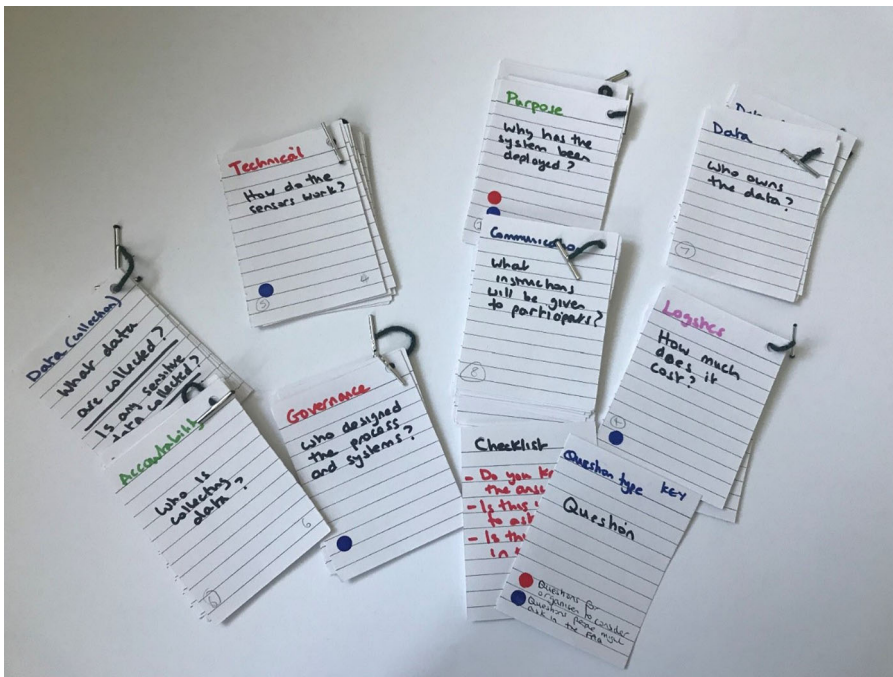 Technical
How do the
sensors work?
5
4
Purpose
Why has the
system been
deployed?
Data
Data
Who owns
the data?
7
Communication
What
instructions
will be given
to participants?
8
Logistics
How much
does it
cost?
Data (collection)
What data
are collected?
Is any sensitive
data collected?
Accountability
Who is
collecting
data?
6
6
Governance
Who designed
the process
and systems?
Checklist
- Do you
the
- Is this
to ask
- Is this
in
Question type KEY
Question
Questions for
organiser to consider
Questions people might
ask in the FAQ